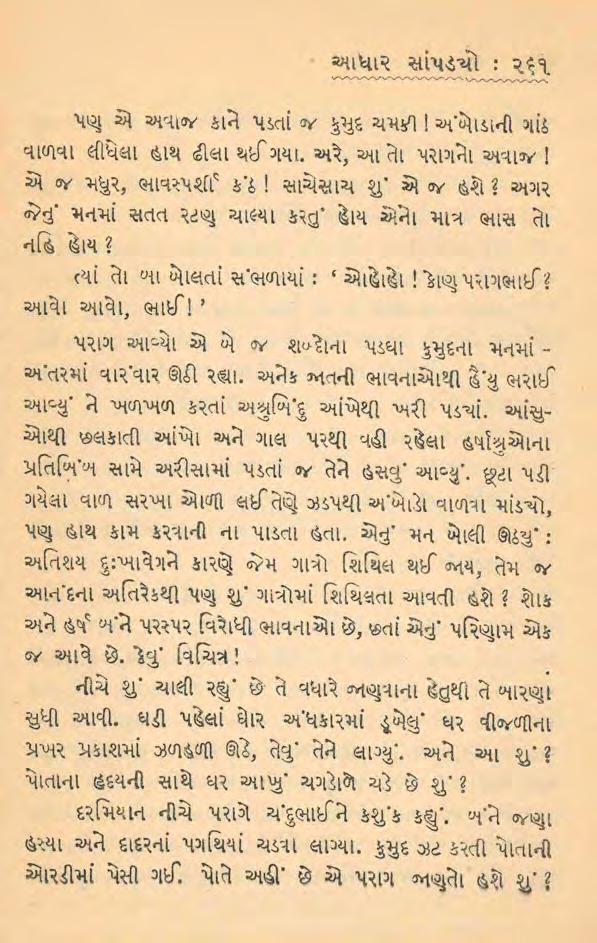 આધાર સાંપડ્યો : ૨૬૧
પણ એ અવાજ કાને પડતાં જ કુમુદ ચમકી ! અંબોડાની ગાંઠ
વાળવા લીધેલા હાથ ઢીલા થઈ ગયા. અરે, આ તો પરાગનો અવાજ !
એ જ મધુર, ભાવસ્પર્શી કંઠ ! સાચેસાચ શું એ જ હશે ? અગર
જેનું મનમાં સતત રટણ ચાલ્યા કરતું હોય એનો માત્ર ભાસ તો
નહિ હોય ?
ત્યાં તો બા બોલતાં સંભળાયાં : ‘ ઓહોહો ! કોણ પરાગભાઈ ?
આવો આવો, ભાઈ ! ’
પરાગ આવ્યો એ બે જ શબ્દોના પડઘા કુમુદના મનમાં -
અંતરમાં વારંવાર ઊઠી રહ્યા. અનેક જાતની ભાવનાઓથી હૈયું ભરાઈ
આવ્યું ને ખળખળ કરતાં અશ્રુબિંદુ આંખેથી ખરી પડ્યાં. આંસુ-
ઓથી છલકાતી આંખો અને ગાલ પરથી વહી રહેલા હર્ષાશ્રુઓના
પ્રતિબિંબ સામે અરીસામાં પડતાં જ તેને હસવું આવ્યું. છૂટા પડી
ગયેલા વાળ સરખા ઓળી લઈ તેણે ઝડપથી અંબોડો વાળવા માંડ્યો,
પણ હાથ કામ કરવાની ના પાડતા હતા. એનું મન બોલી ઊઠ્યું :
અતિશય દુઃખાવેગને કારણે જેમ ગાત્રો શિથિલ થઈ જાય, તેમ જ
આનંદના અતિરેકથી પણ શું ગાત્રોમાં શિથિલતા આવતી હશે ? શોક
અને હર્ષ બંને પરસ્પર વિરોધી ભાવનાઓ છે, છતાં એનું પરિણામ એક
જ આવે છે. કેવું વિચિત્ર !
નીચે શું ચાલી રહ્યું છે તે વધારે જાણવાના હેતુથી તે બારણા
સુધી આવી. ઘડી પહેલાં ઘોર અંધકારમાં ડૂબેલું ઘર વીજળીના
પ્રખર પ્રકાશમાં ઝળહળી ઊઠે, તેવું તેને લાગ્યું. અને આ શું ?
પોતાના હૃદયની સાથે ઘર આખું ચગડોળે ચડે છે શું ?
દરમિયાન નીચે પરાગે ચંદુભાઈને કશુંક કહ્યું. બંને જણા
હસ્યા અને દાદરનાં પગથિયાં ચડવા લાગ્યા. કુમુદ ઝટ કરતી પોતાની
ઓરડીમાં પેસી ગઈ. પોતે અહીં છે એ પરાગ જાણતો હશે શું ?